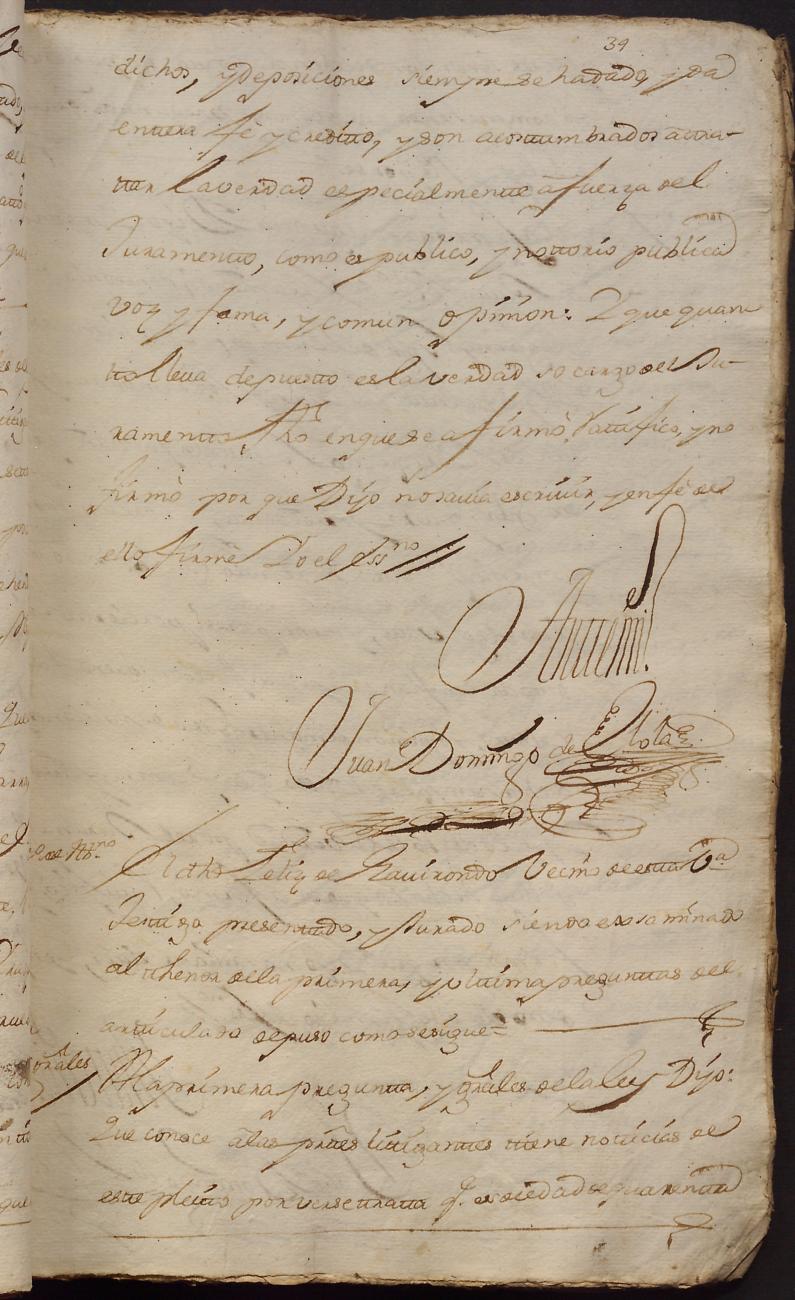 39
dichos, y deposiciones siempre se ha dado, y da
entera fè y credito, y son acostumbrados a tra-
ttar la verdad especialmente à fuerza del
Juramento, como es publico, y nottorio publica
voz y fama, y comun opinion: Y que quan
tto lleua depuesto es la verdad so cargo del Ju-
ramento, fho en que se afirmò, Rattifico, y no
firmò por que Dijo no sauia escriuir, y en fè de
ello firmè Yo el essno
Antemi
Juan Domingo de
El dho Feliz de Gauirondo Vecino de esta Va
Testigo presentado, y Jurado siendo exsaminado
al thenor de la primera, y vltima preguntas del
articulado depuso como se sigue=
Grales
A la primera pregunta, y grales de la ley Dijo:
Que conoce a las prtes litigantes ttiene noticias de
este pleito por verse tratta q. es de edad de quarenta